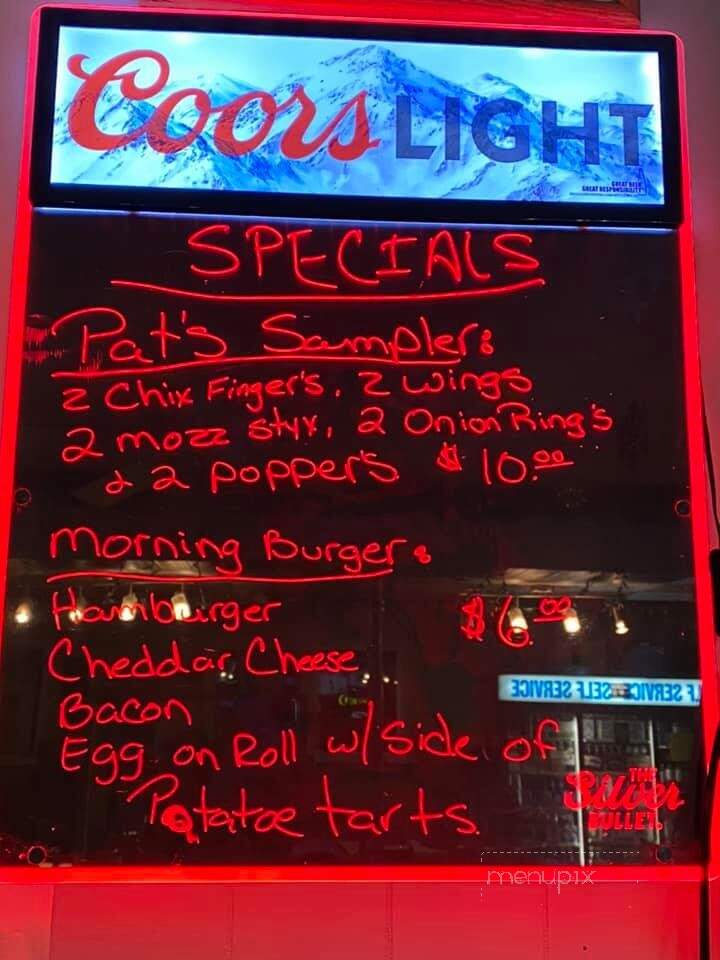 Coors LIGHT
GREAT BEER
GREAT RESPONSIBILITY
SPECIALS
Pat's Sampler:
2 Chix Finger's, 2 wings
2 mozz styx, 2 Onion Ring's
& 2 poppers $10.00
Morning Burger:
Hamburger $6.00
Cheddar Cheese
Bacon
Egg on Roll w/ Side of
Potatoe tarts
SELF SERVICE SELF SERVICE
THE
Silver
BULLET
menupix